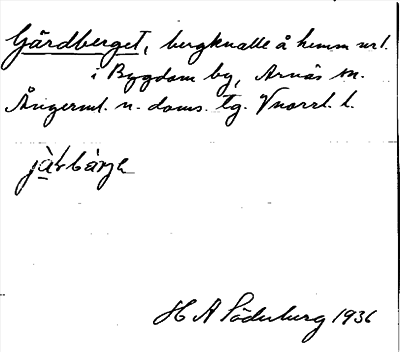 Gärdberget, bergknalle å hemm nr 1.
i Bygdom by, Arnäs sn.
Ångerml. n. doms. tg. Vnorrl. l.
H A Söderberg 1936